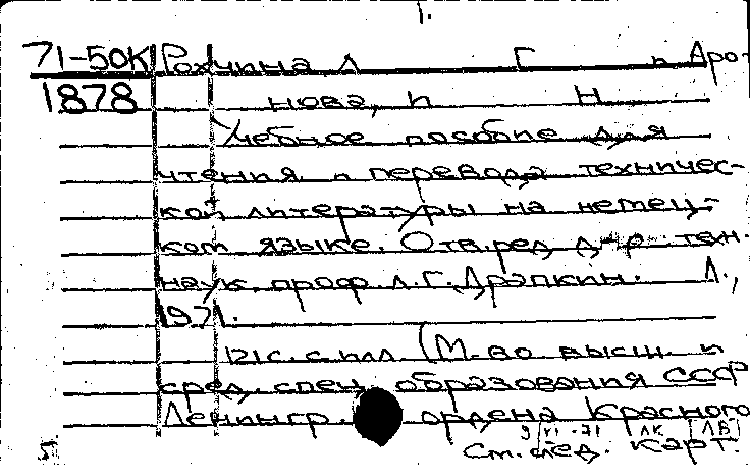 1.
71-50К Рохлина Л Г и Аро-
1878 нова, И Н
Учебное пособие для
чтения и перевода техничес-
кой литературы на немец-
ком языке. Отв. ред. д-р техн.
наук, проф. Л.Г. Драпкин. Л.,
1971.
121 с. с илл. (М-во высш. и
сред. спец. образования СССР
Ленингр. ордена Красного
9/VI-71 ЛК ЛВ
См. след. карт.